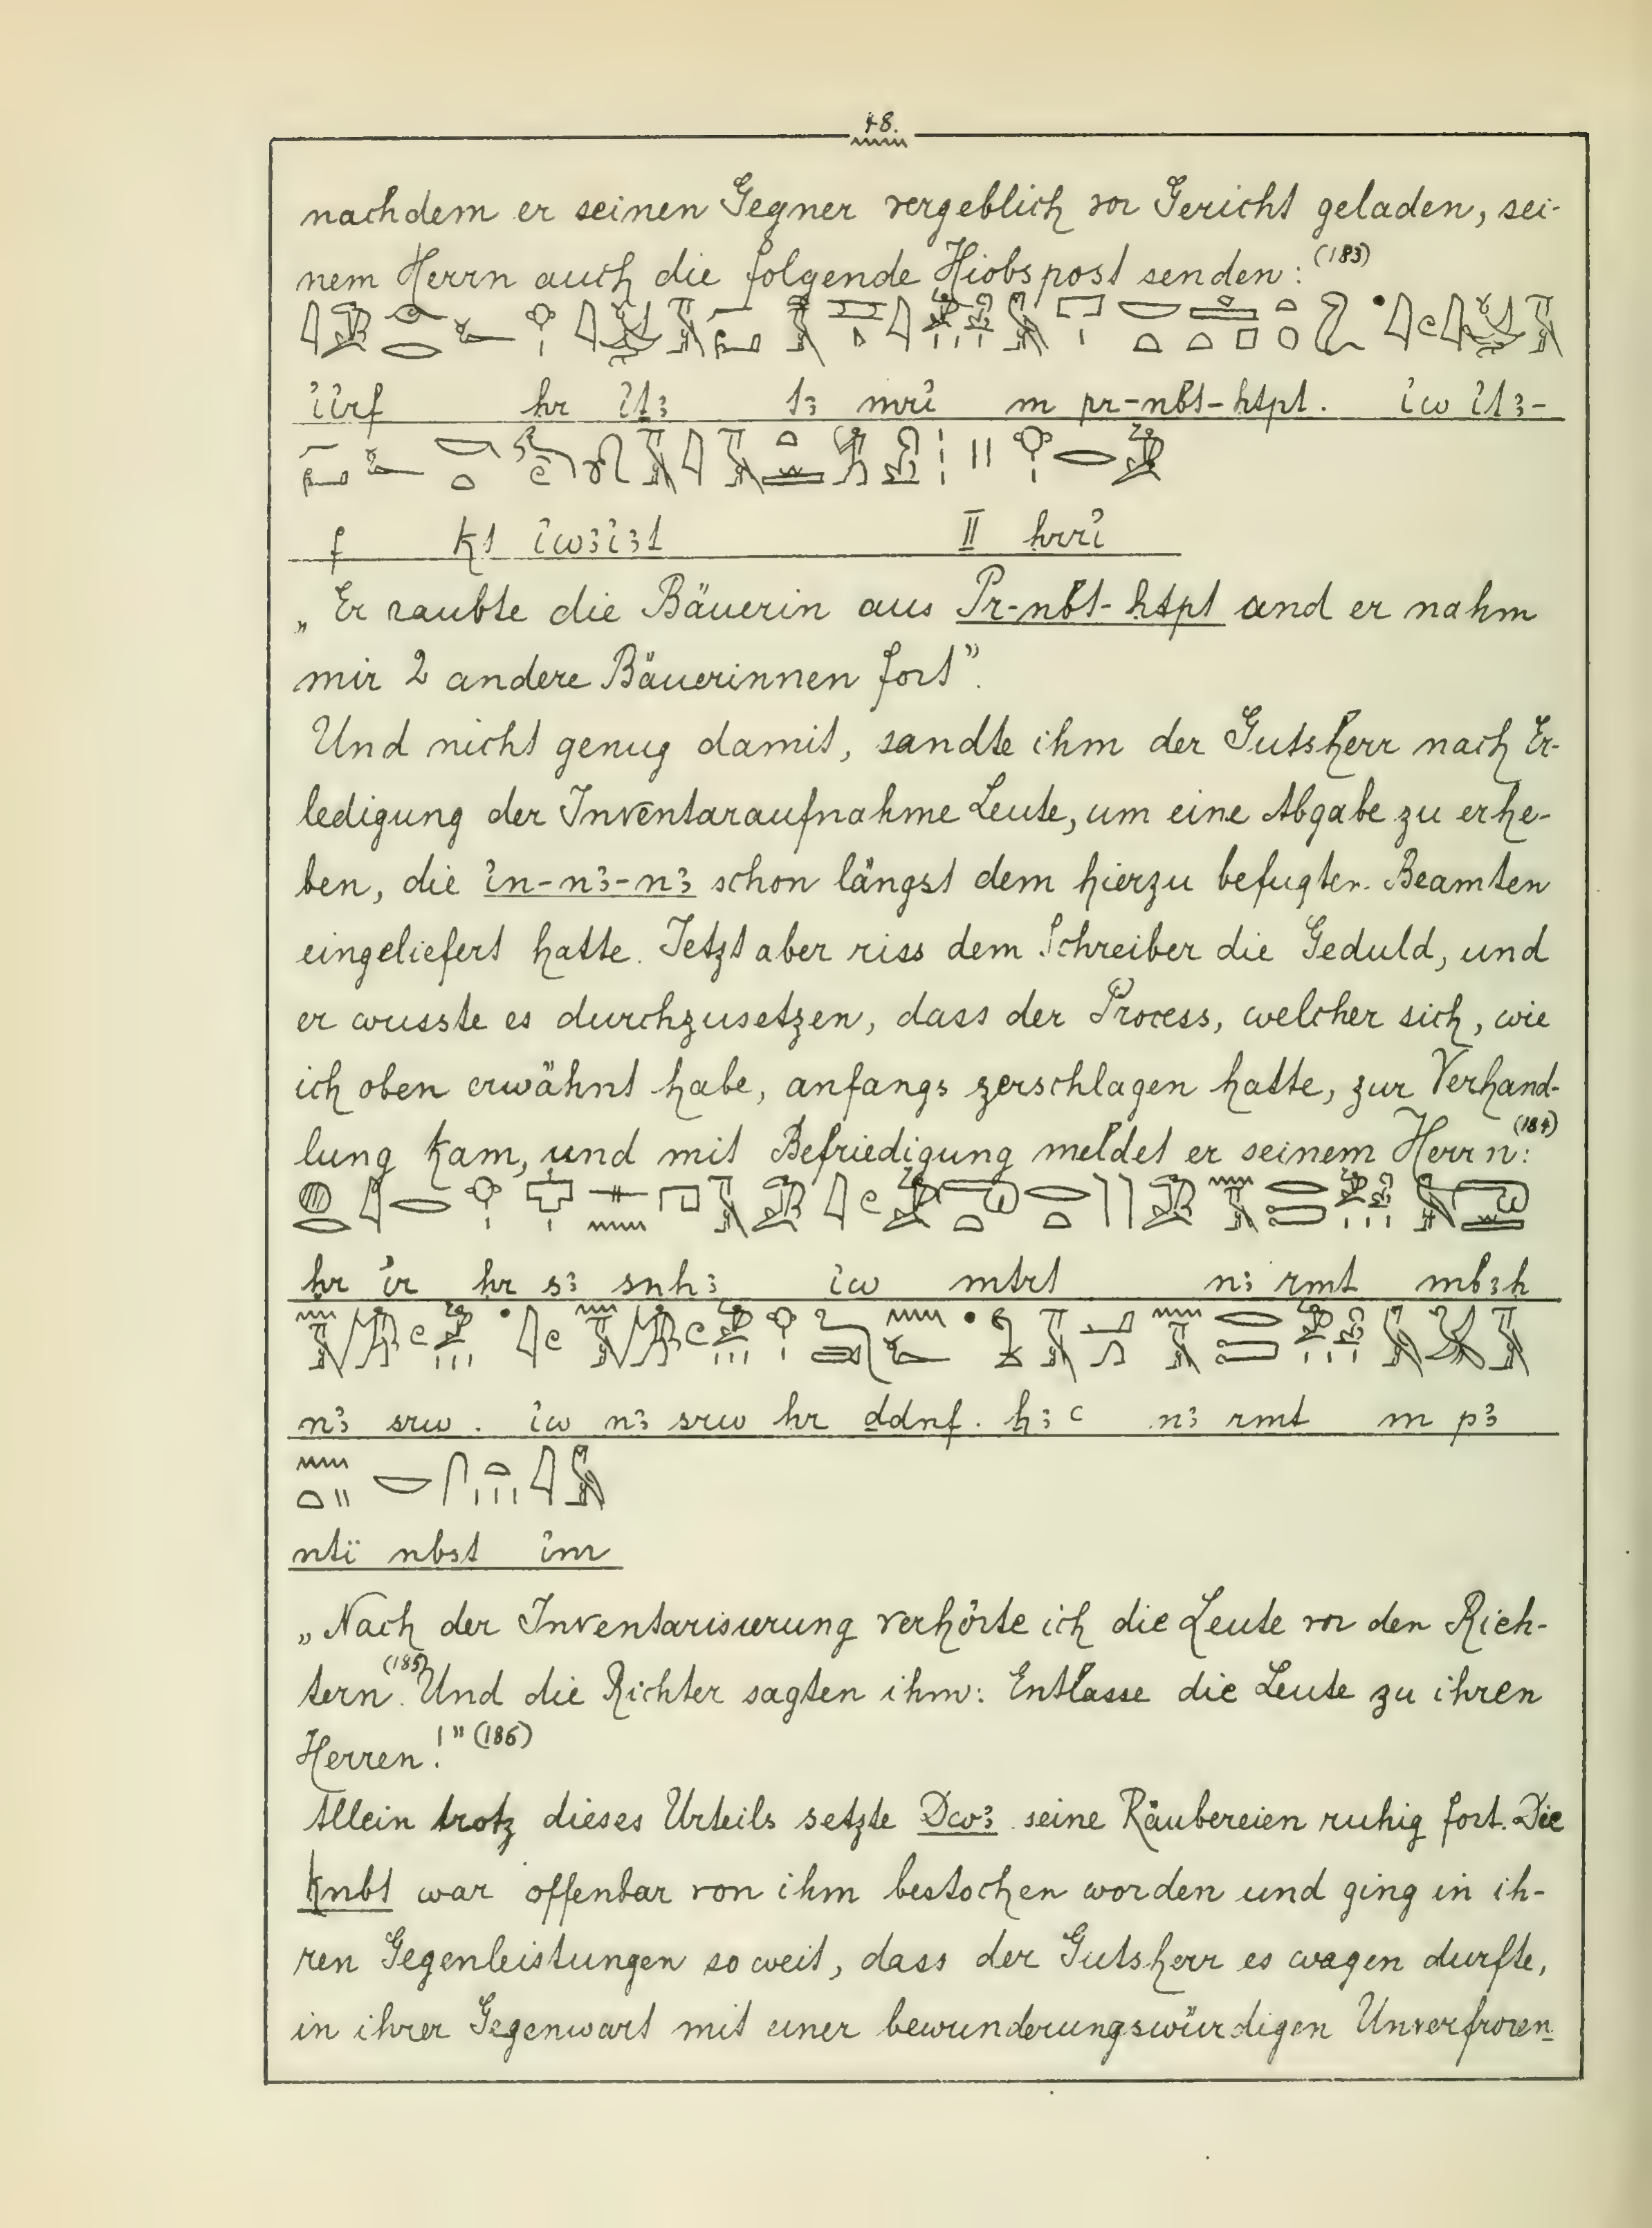 48.
nachdem er seinen Gegner vergeblich vor Gericht geladen, sei-
nem Herrn auch die folgende Hiobspost senden: (183)
iirf ḥr iṯꜣ tꜣ mri m pr-nbt-ḥtpt. iw iṯꜣ-
f kt iwꜣiꜣt II ḥrri
„Er raubte die Bäuerin aus Pr-nbt-ḥtpt und er nahm
mir 2 andere Bäuerinnen fort".
Und nicht genug damit, sandte ihm der Gutsherr nach Er-
ledigung der Inventaraufnahme Leute, um eine Abgabe zu erhe-
ben, die in-nꜣ-nꜣ schon längst dem hierzu befugten Beamten
eingeliefert hatte. Jetzt aber riss dem Schreiber die Geduld, und
er wusste es durchzusetzen, dass der Process, welcher sich, wie
ich oben erwähnt habe, anfangs zerschlagen hatte, zur Verhand-
lung kam, und mit Befriedigung meldet er seinem Herrn: (184)
ḫr ir ḥr sꜣ snhꜣ iw mtrt nꜣ rmṯ mbꜣḥ
nꜣ srw. iw nꜣ srw ḥr ḏdnf. ḫꜣꜥ nꜣ rmṯ m pꜣ
ntï nbst im
„Nach der Inventarisierung verhörte ich die Leute vor den Rich-
tern. (185) Und die Richter sagten ihm: Entlasse die Leute zu ihren
Herren!" (186)
Allein trotz dieses Urteils setzte Ḏwꜣ seine Räubereien ruhig fort. Die
ḳnbt war offenbar von ihm bestochen worden und ging in ih-
ren Gegenleistungen so weit, dass der Gutsherr es wagen durfte,
in ihrer Gegenwart mit einer bewunderungswürdigen Unverfroren-